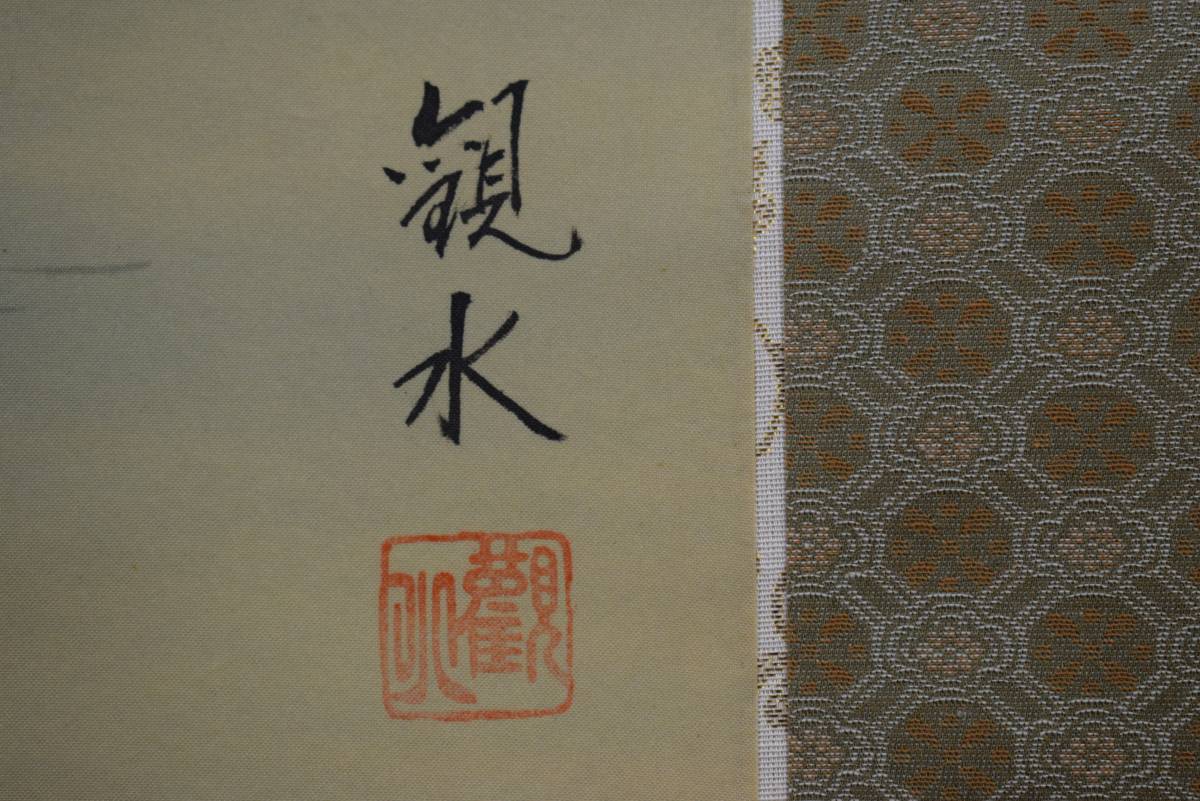 観水
觀水